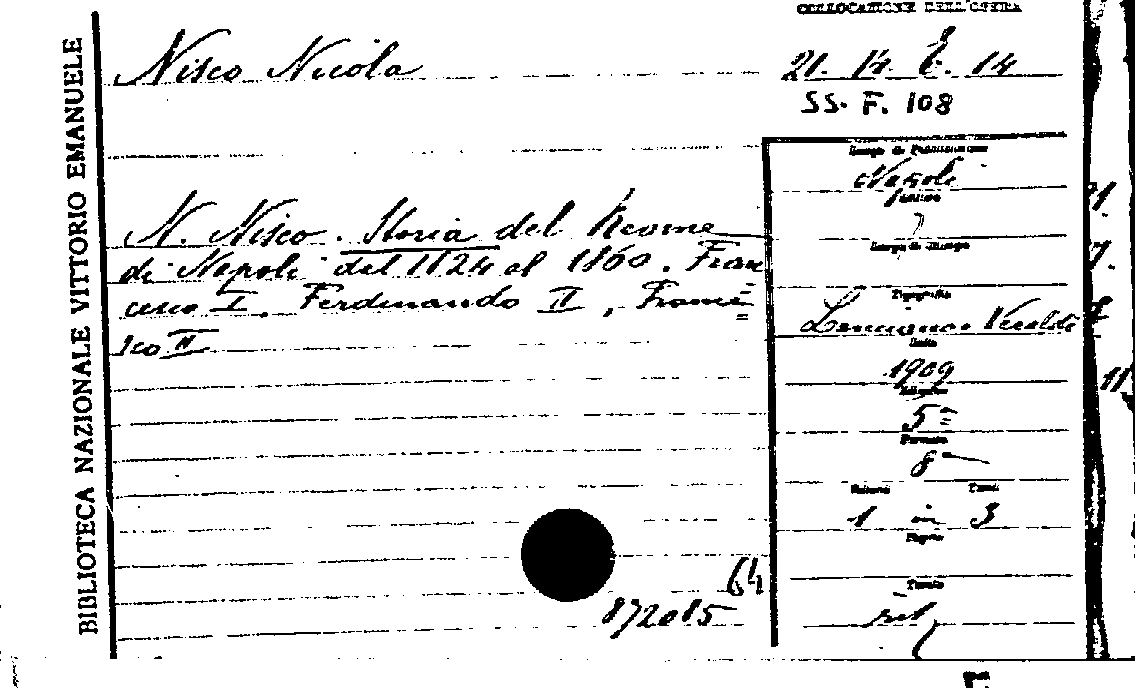 BIBLIOTECA NAZIONALE VITTORIO EMANUELE
COLLOCAZIONE DELL'OPERA
Nisco Nicola
21. 14. E. 14
SS. F. 108
N. Nisco. Storia del Reame
di Napoli dal 1824 al 1860. Fran
cesco I. Ferdinando II, France=
sco II
Luogo di Pubblicazione
Napoli
Luogo di Stampa
Tipografia
Lanciano e Veraldi
Data
1909
Edizione
5=
Formato
8
Volumi Tomi
1 in 3
Pagine
Tavole
ril
64
872085